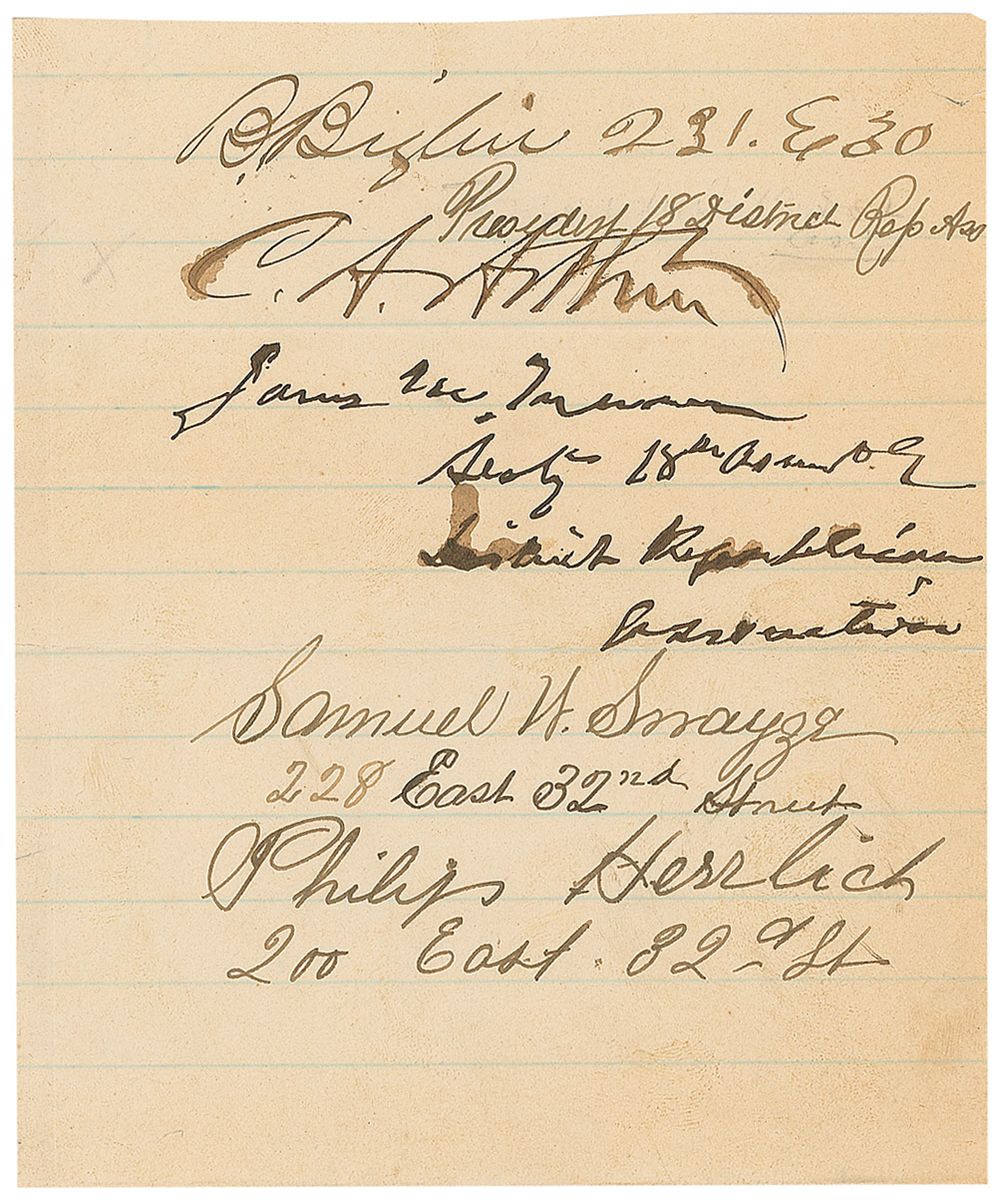 B. Biglin 231. E 30
President 18 District Rep Ass
C. A. Arthur
James Mc
Secty 18th
District Republican
Association
Samuel W. Swayze
228 East 32nd Street
Philip Herrlich
200 East. 32d St